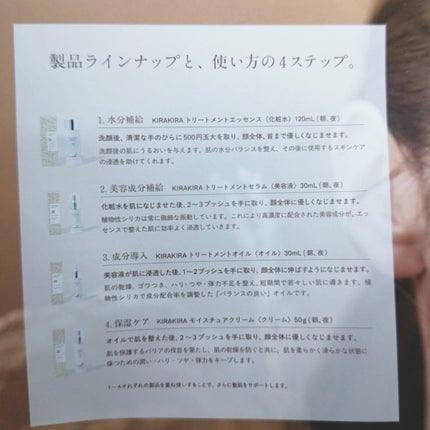 製品ラインナップと、使い方の4ステップ。
1. 水分補給 KIRAKIRA トリートメントエッセンス〈化粧水〉120mL（朝、夜）
洗顔後、清潔な手のひらに500円玉大を取り、顔全体、首まで優しくなじませます。
洗顔後の肌にうるおいを与えます。肌の水分バランスを整え、その後に使用するスキンケア
の浸透を助けてくれます。
2. 美容成分補給 KIRAKIRA トリートメントセラム〈美容液〉30mL（朝、夜）
化粧水を肌になじませた後、2〜3プッシュを手に取り、顔全体に優しくなじませます。
植物性シリカは常に微細な振動しています。これにより高濃度に配合された美容成分が、エッ
センスで整えた肌に効率よく浸透していきます。
3. 成分導入 KIRAKIRA トリートメントオイル〈オイル〉30mL（朝、夜）
美容液が肌に浸透した後、1〜2プッシュを手に取り、顔全体に伸ばすようになじませます。
肌の乾燥、ゴワつき、ハリ・つや・弾力不足を整え、短期間で若々しい肌に導きます。植
物性シリカで成分配合率を調整した「バランスの良い」オイルです。
4. 保湿ケア KIRAKIRA モイスチュアクリーム〈クリーム〉50g（朝、夜）
オイルで肌を整えた後、2〜3プッシュを手に取り、顔全体に優しくなじませます。
肌を保護するバリアの役目を果たし、肌の乾燥を防ぐと共に、肌を柔らかく滑らかな状態に
保つための潤い・ハリ・ツヤ・弾力をキープします。
1〜4それぞれの製品を重ね使いすることで、さらに髪肌をサポートします。